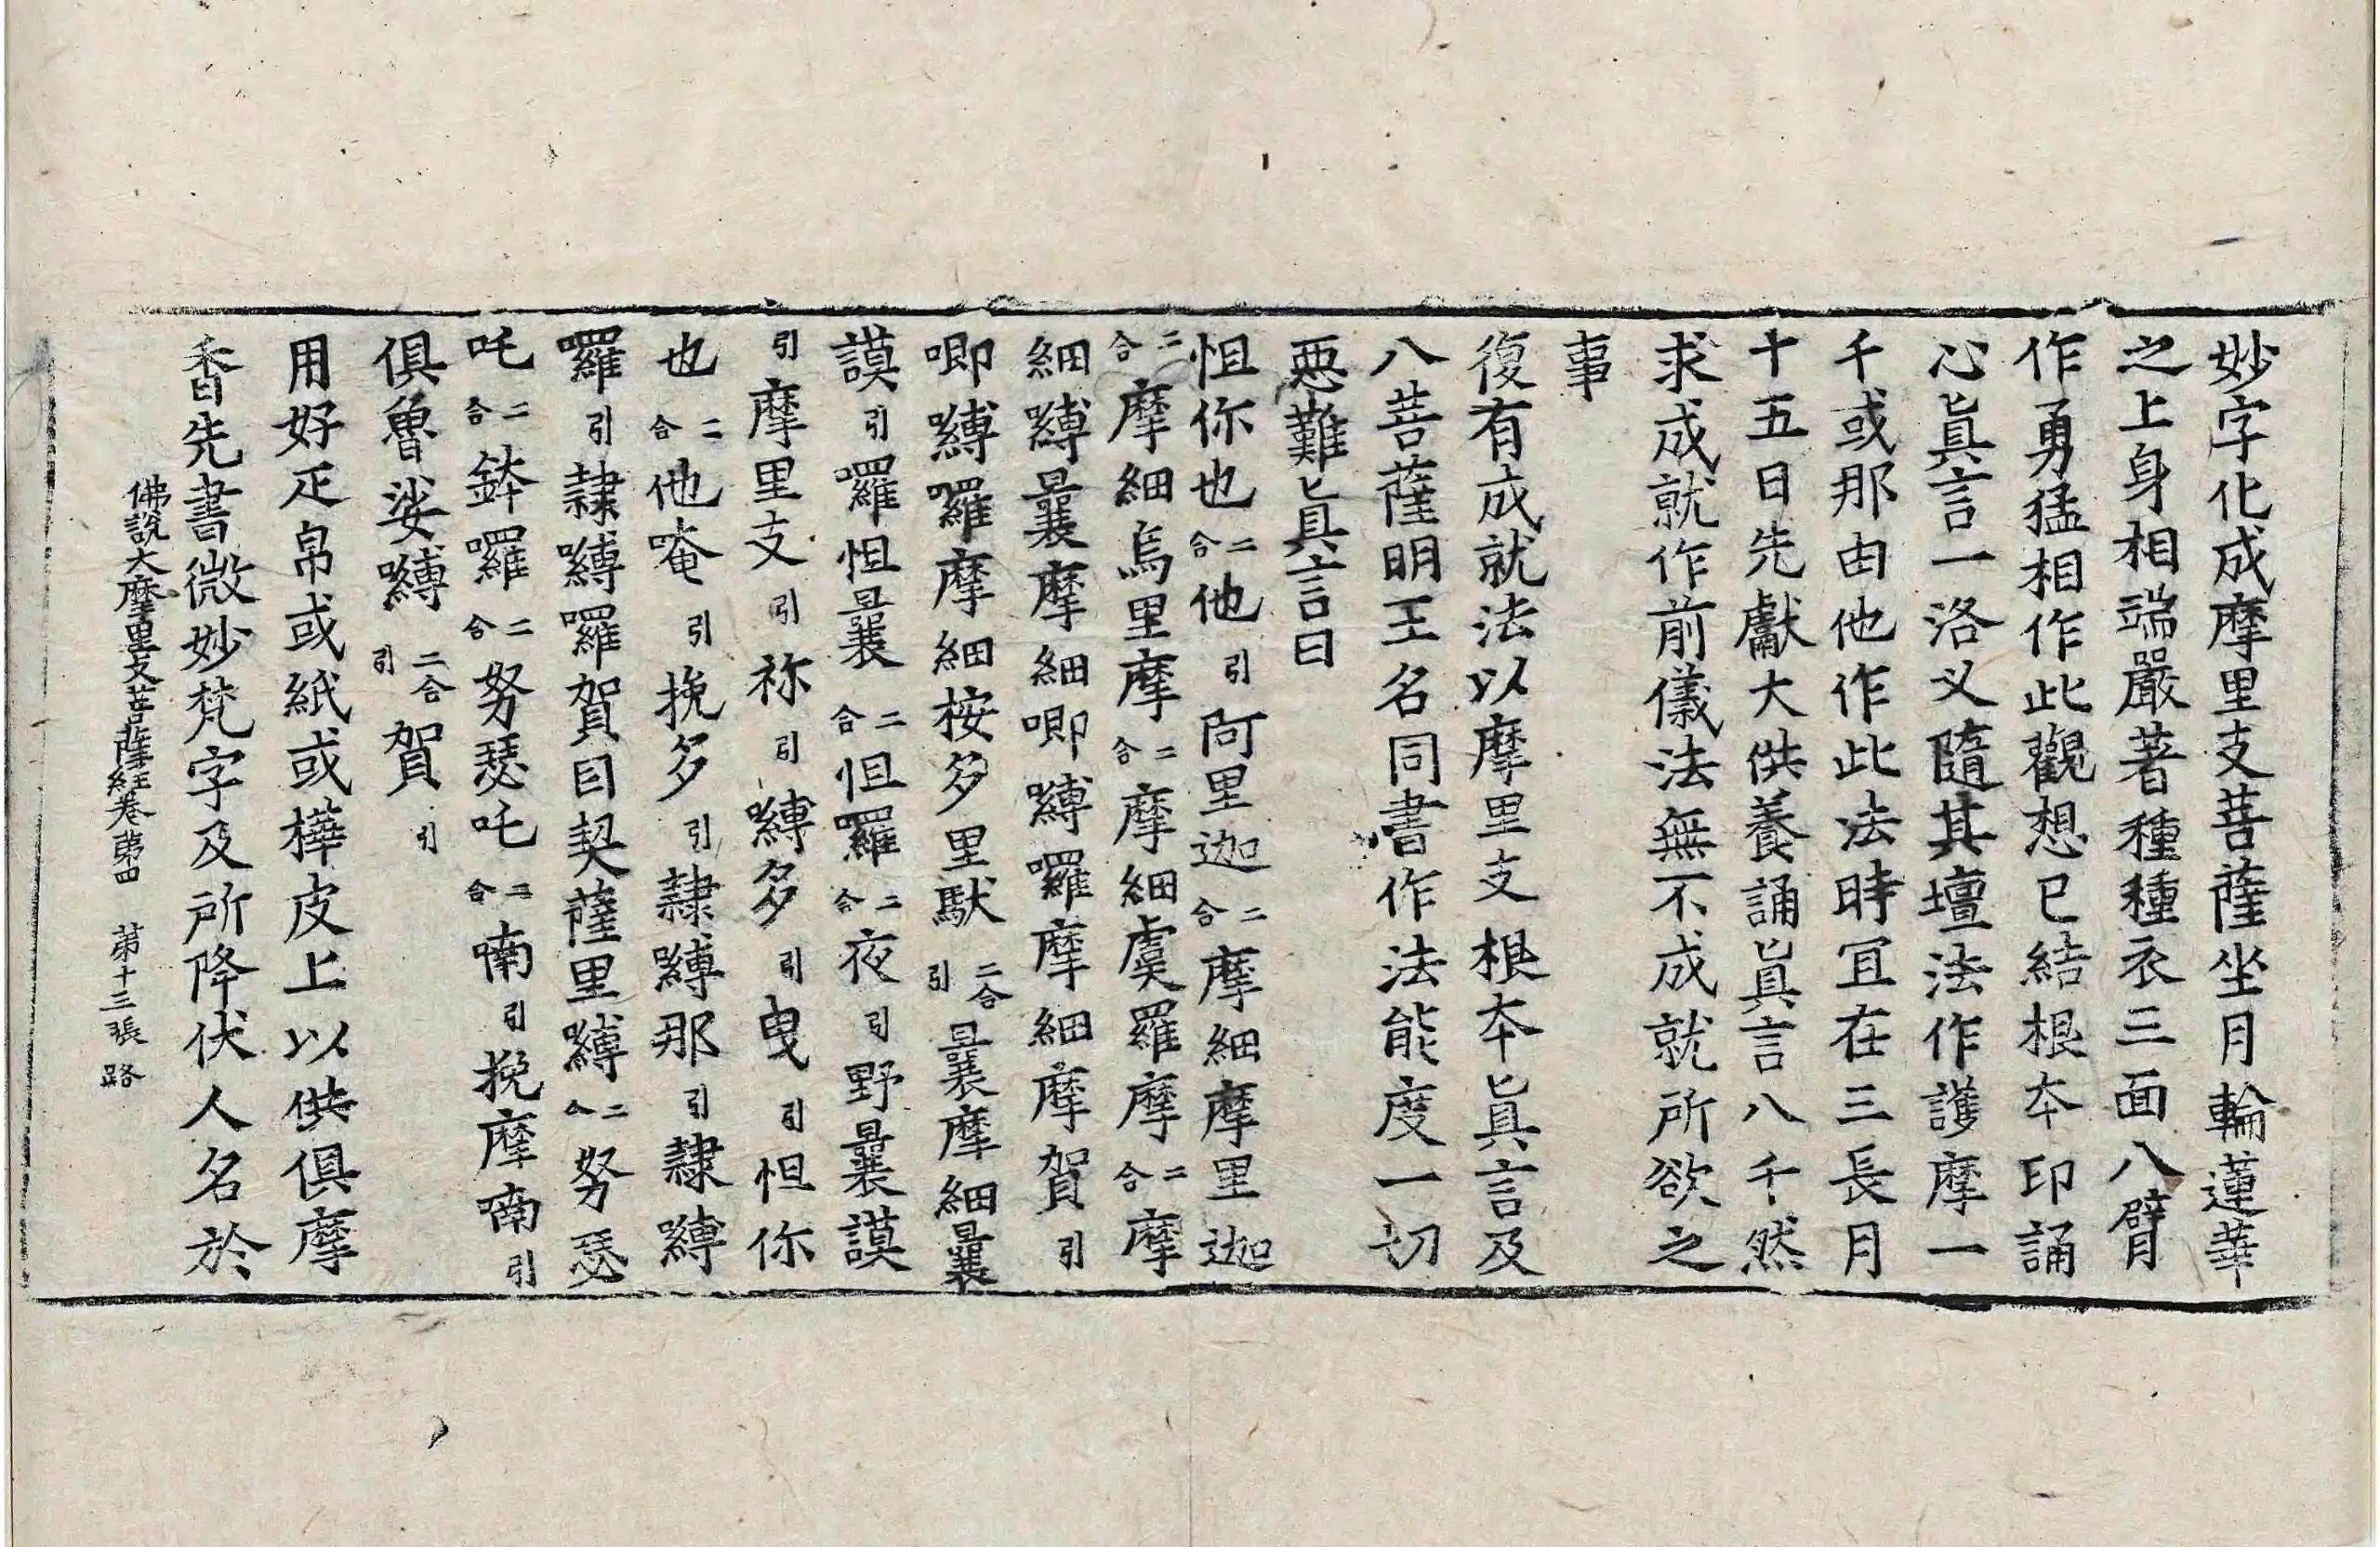 妙字化成摩里支菩薩坐月輪蓮華
之上身相端嚴著種種衣三面八臂
作勇猛相作此觀想已結根本印誦
心眞言一洛叉隨其壇法作護摩一
千或那由他作此法時宜在三長月
十五日先獻大供養誦眞言八千然
求成就作前儀法無不成就所欲之
事
復有成就法以摩里支根本眞言及
八菩薩明王名同書作法能度一切
惡難眞言曰
怛你也二合他引阿里迦二合摩細摩里迦
二合摩細烏里摩二合摩細虞羅摩二合摩
細嚩曩摩細唧嚩囉摩細摩賀引
唧嚩囉摩細桉多里馱二合引曩摩細曩
謨引囉怛曩二合怛囉二合夜引野曩謨
引摩里支引祢引嚩多引曳引怛你
也二合他唵引挽多引隷嚩那引隷嚩
囉引隷嚩囉賀目契薩里嚩二合努瑟
吒二合鉢囉二合努瑟吒二合喃引挽摩喃引
俱魯娑嚩二合引賀引
用好疋帛或紙或樺皮上以供俱摩
香先書微妙梵字及所降伏人名於
佛說大摩里支菩薩經卷第四　第十三張　路